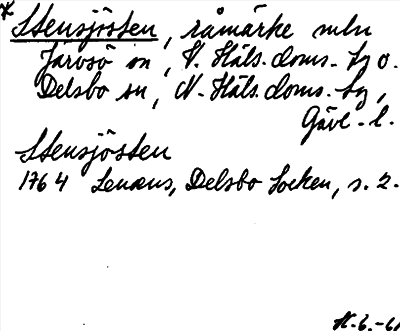 Stensjösten, råmärke mln
Järvsö sn, V. Häls. doms. hg o.
Delsbo sn, N. Häls. doms. hg,
Gävl. l.
Stensjösten
1764 Lenæus, Delsbo Socken, s. 2.